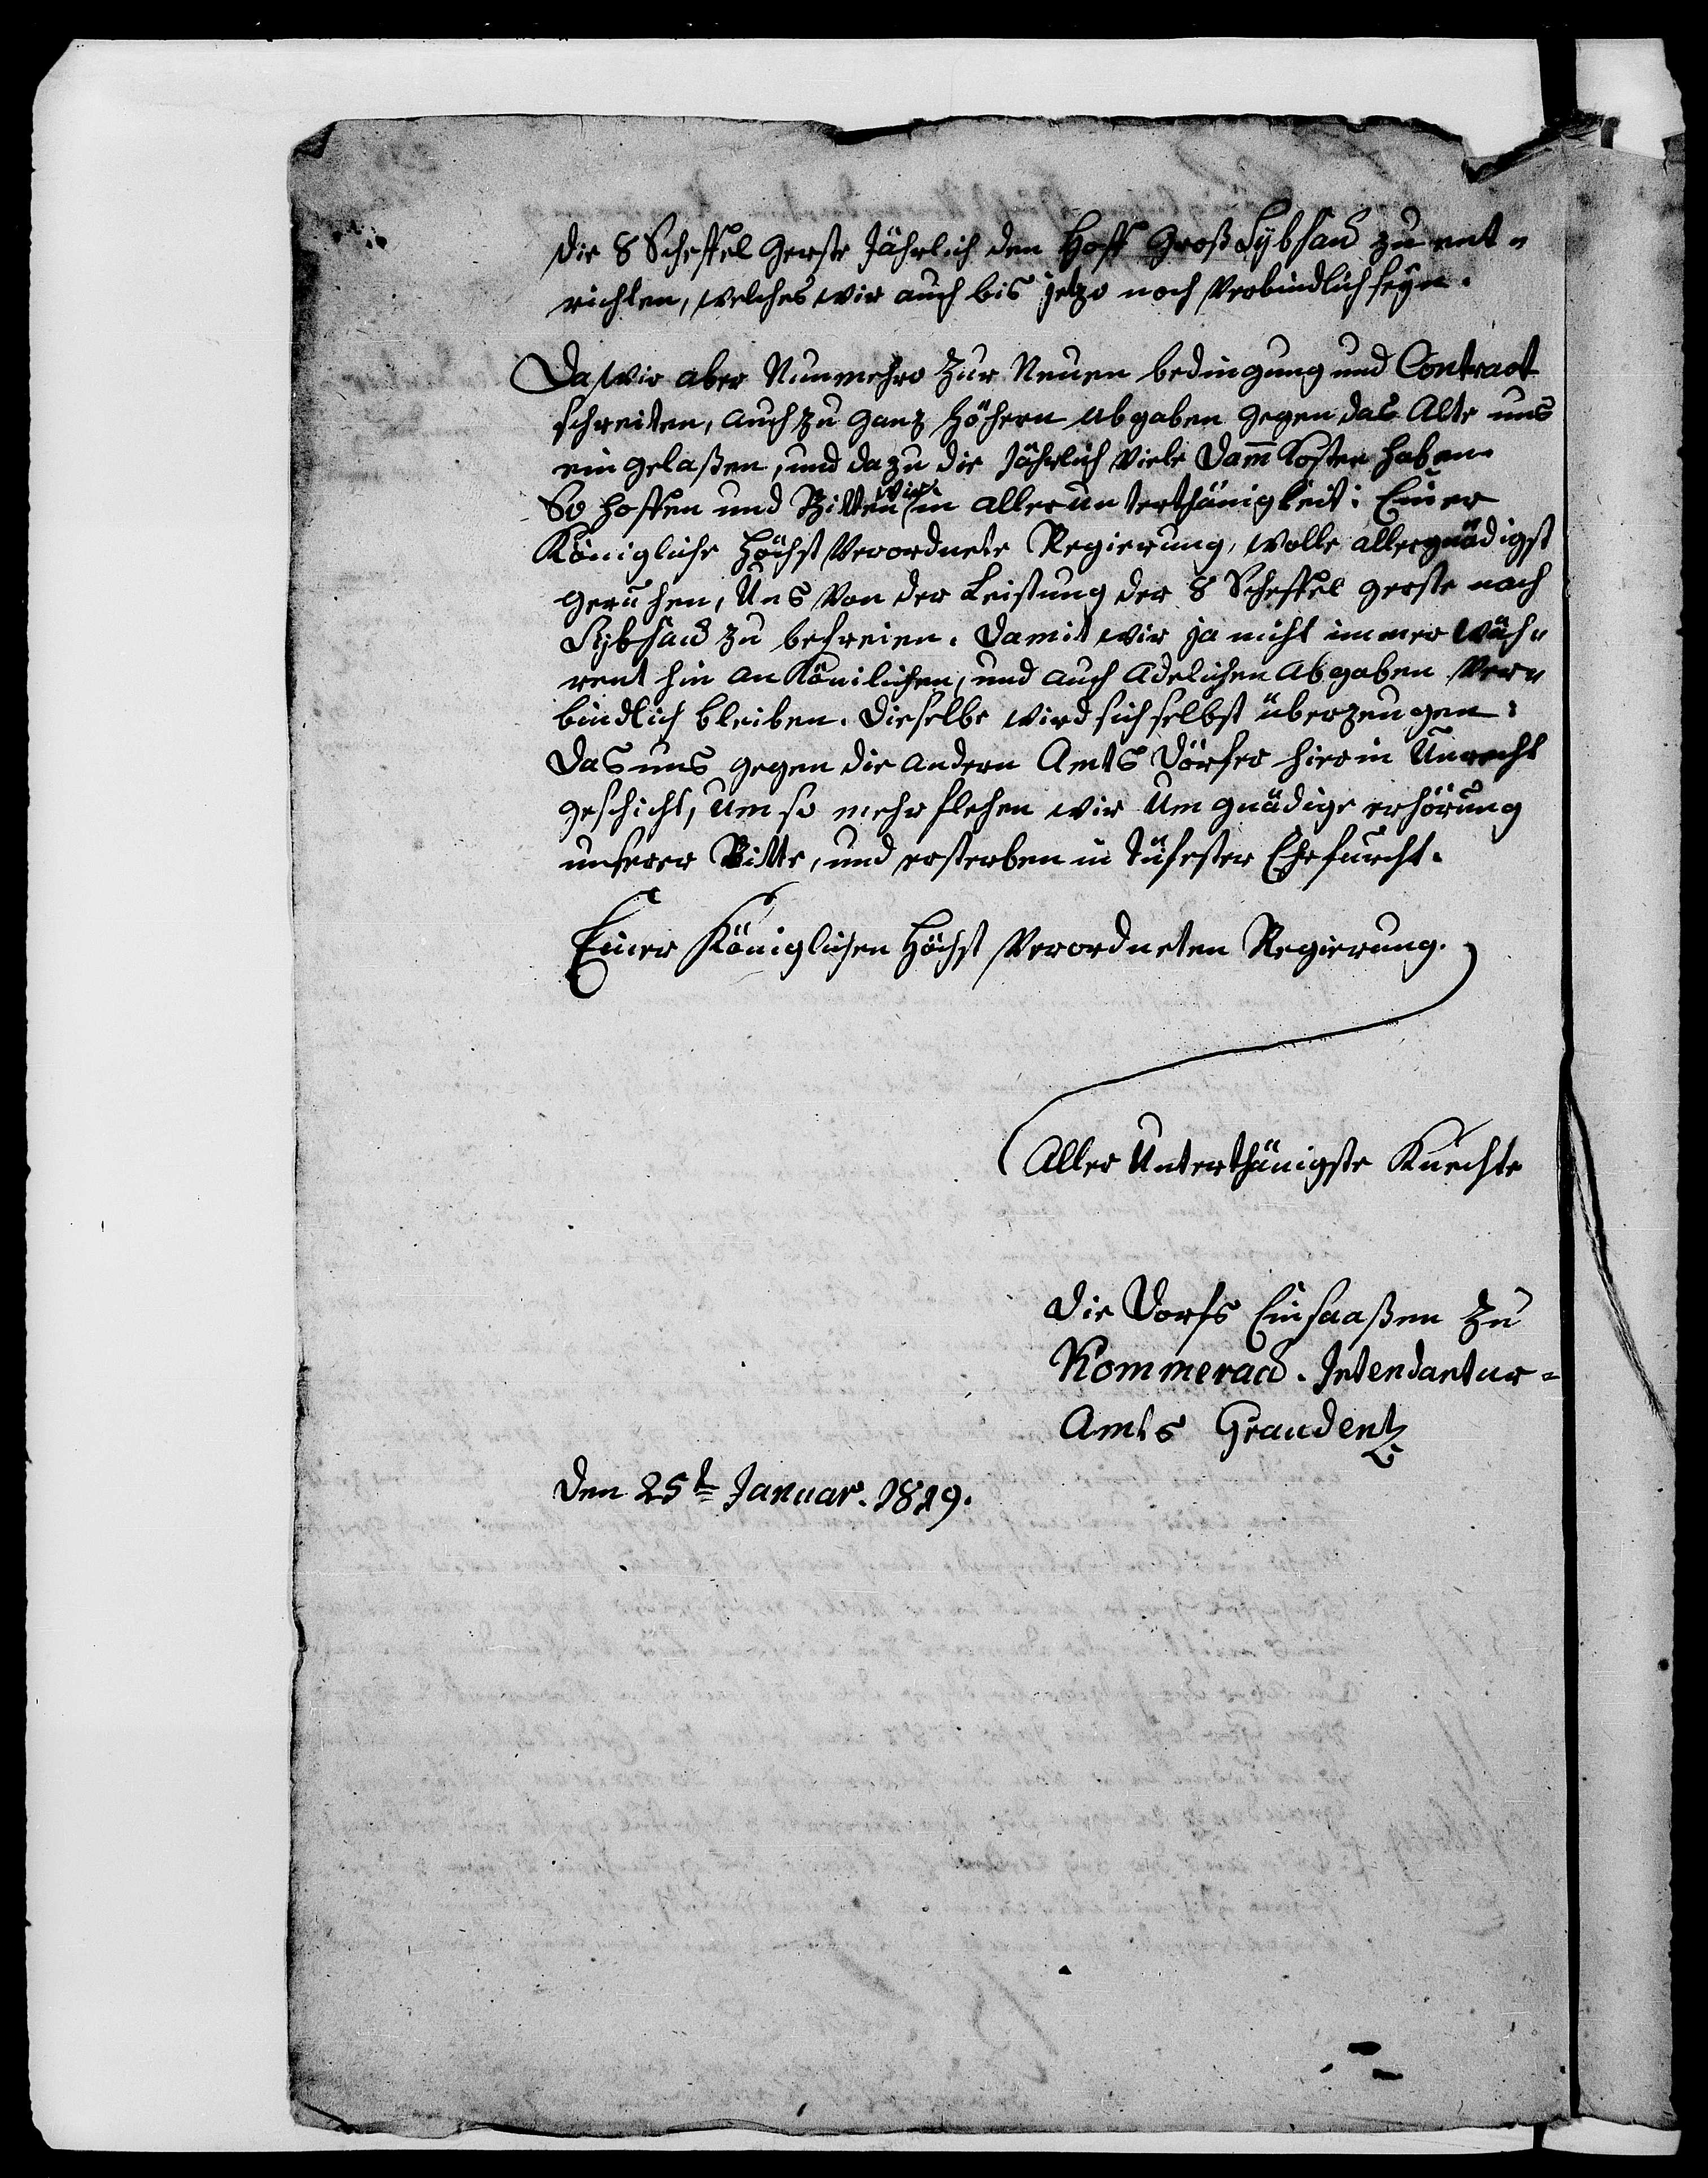 die 8 Scheffel Gerste Jährlich den Hoff Groß Lybsau zu ent„
richten, welches wir auch bis jetzo noch Verbindlich seyn.
Da wir aber Nunmehro zur Neuen bedingung und Contract
schreiten, auch zu ganz Höhern abgaben gegen das Alte uns
ein gelaßen, und dazu die Jährlich Viele Dam̅ Kosten haben.
So hoffen und Bitten wir in allerunterthänigkeit: Einer
Königliche Höchst Verordnete Regierung, wolle allergnädigst
geruhen, Uns Von der Leistung der 8 Scheffel gerste nach
Lybsau zu befreien. Damit wir ja nicht immer wäh„
rent hin an Könilichen, und auch Adelichen Abgaben Ver„
bindlich bleiben. Dieselbe wird sich selbst überzeugen:
Das uns gegen die andern Amts Dörfer hierin Unrecht
geschicht, Um so mehr flehen wir Um gnädige erhörung
unserer Bitte, und ersterben in tüfester Ehrfurcht.
Einer Königlichen Höchst Verordneten Regierung.
Aller Unterthänigste Knechte
Die Dorfs Einsaaßen zu
Kommerau. Intendantur=
Amts Graudentz
Den 25t Januar. 1819.